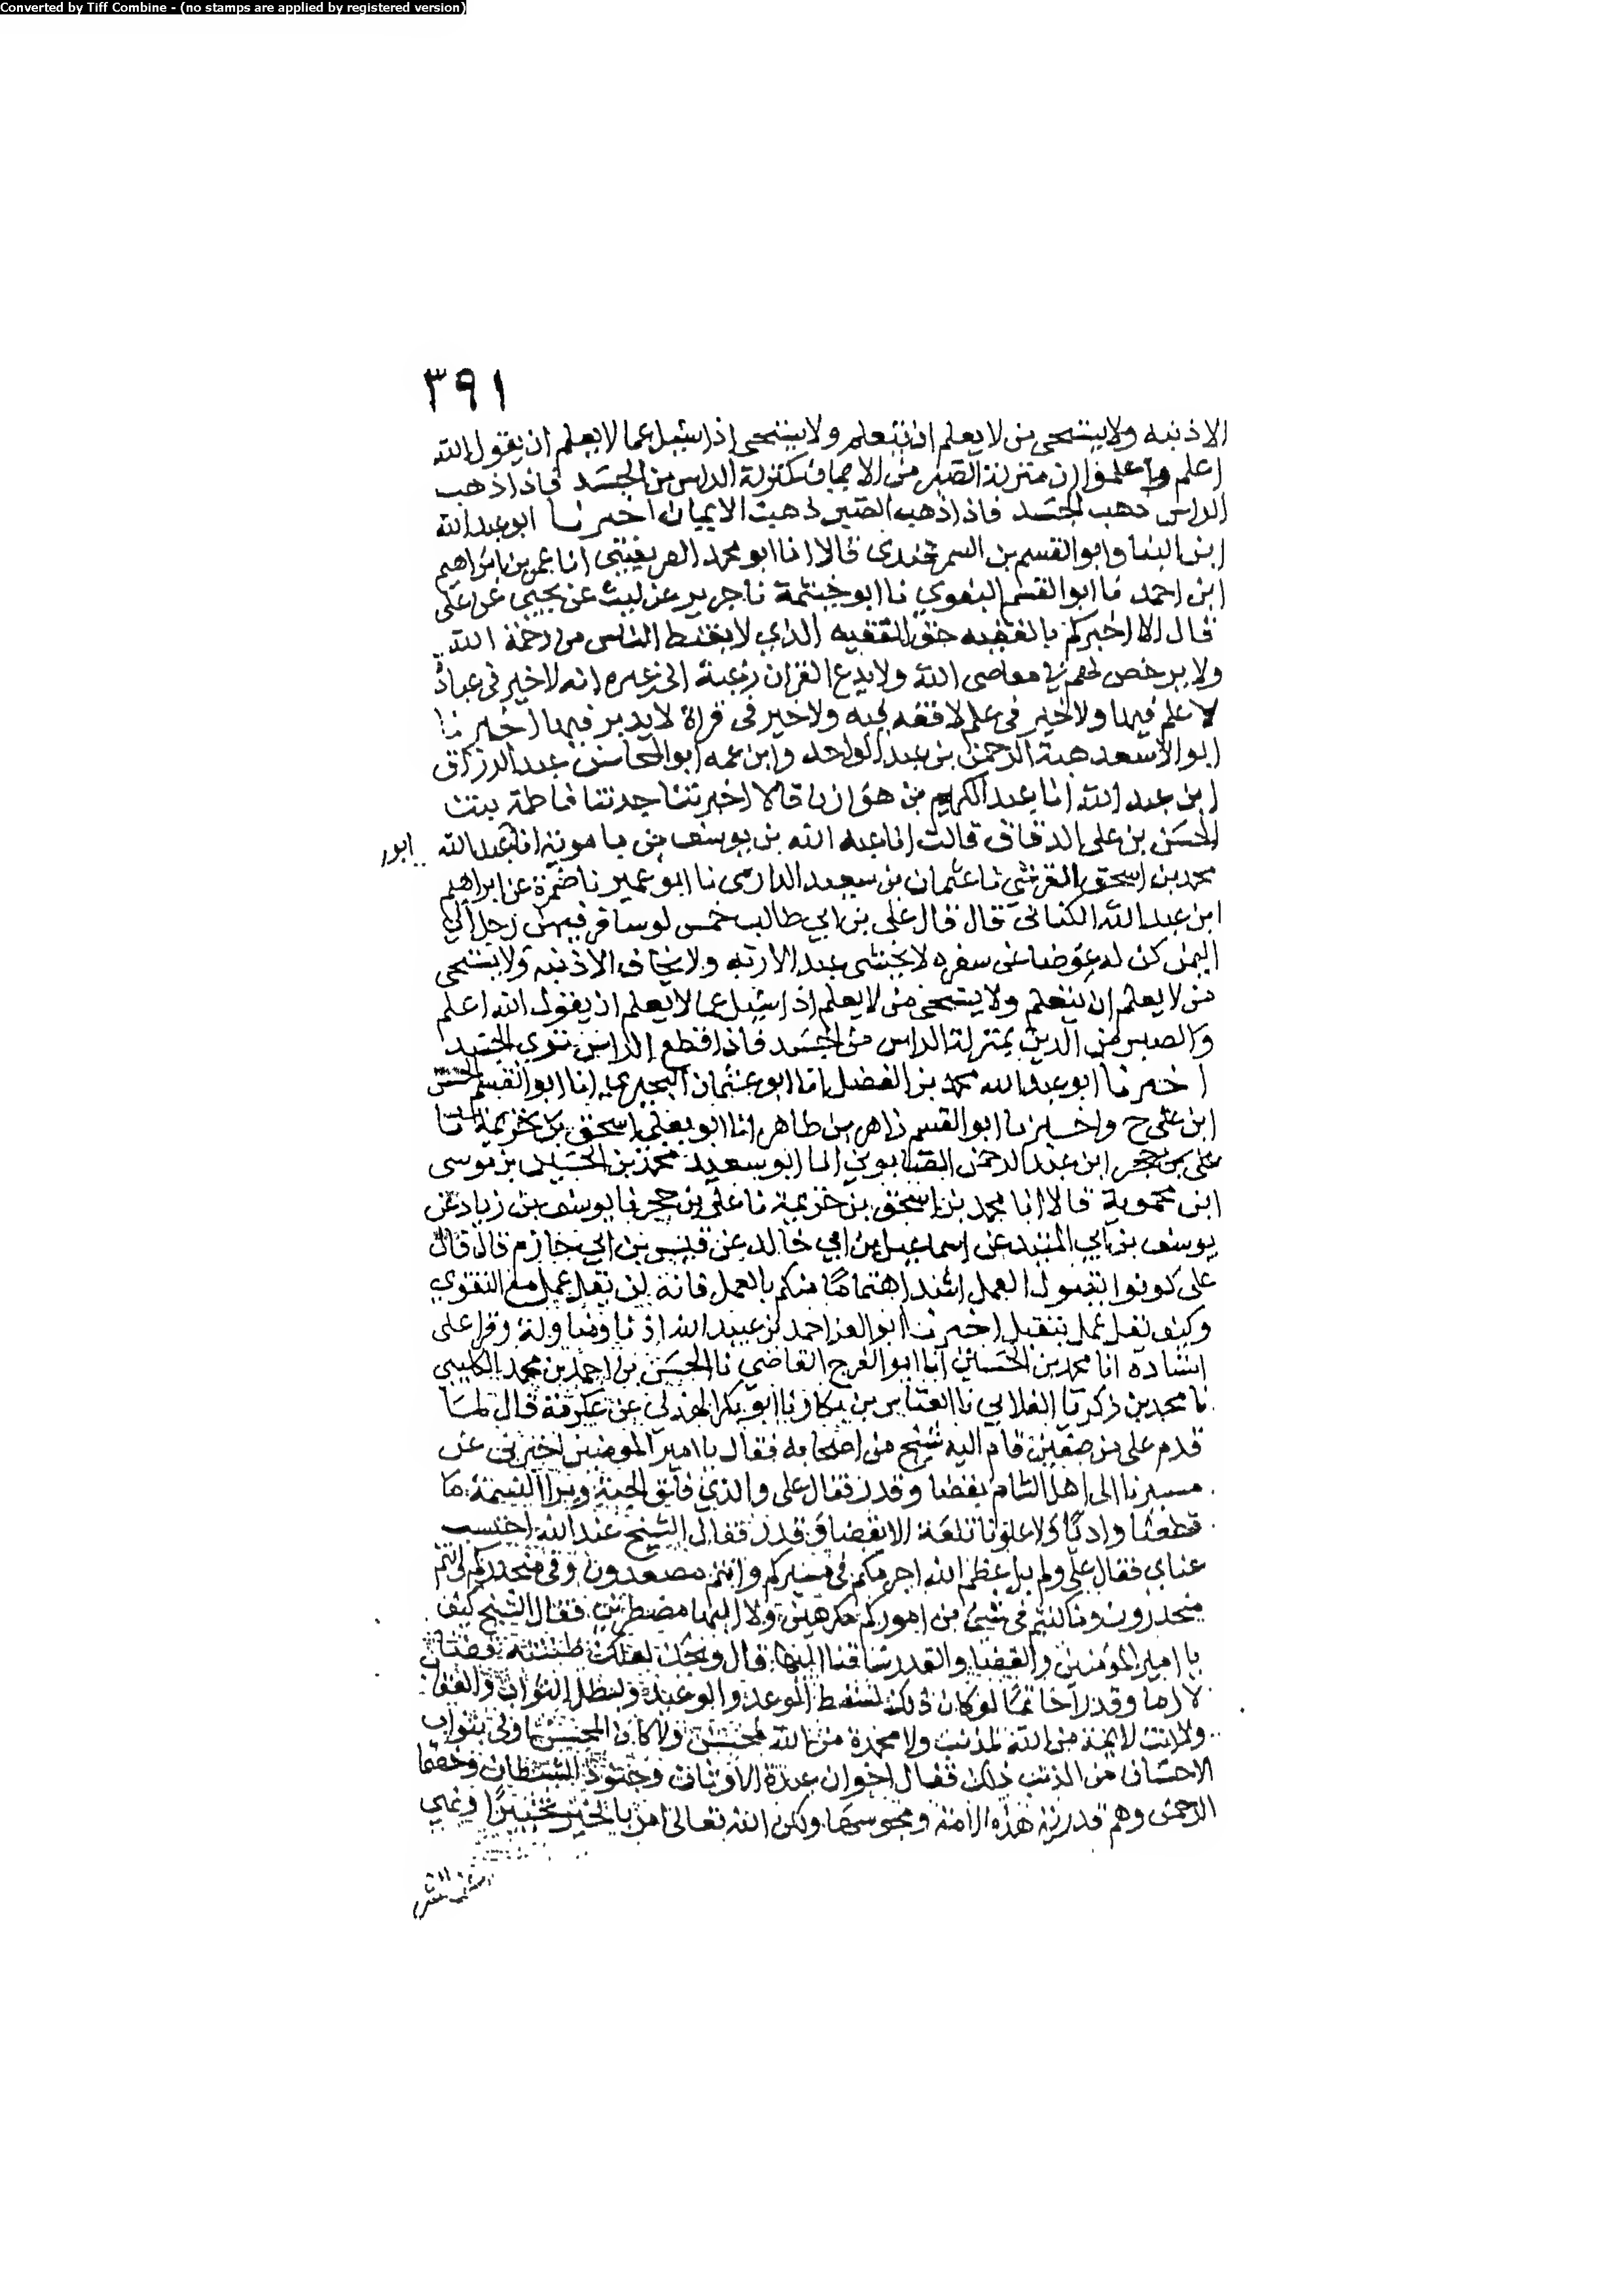 Converted by Tiff Combine - (no stamps are applied by registered version)
٣٩١
الا ذنبه ولا يستحى من لا يعلم ان يتعلم ولا يستحى اذا سئل عما لا يعلم ان يقول الله
اعلم واعلموا ان منزلة الصبر من الايمان كمنزلة الراس من الجسد فاذا ذهب
الراس ذهب الجسد فاذا ذهب الصبر ذهب الايمان اخبرنا ابو عبد الله
ابن البنا وابو القسم بن السمرقندى قالا انا ابو محمد الصريفينى انا عمر بن ابراهيم
ابن احمد نا ابو القسم البغوي نا ابو خيثمة نا جرير عن ليث عن يحيى عن على
قال الا اخبركم بالفقيه حق الفقيه الذي لا يقنط الناس من رحمة الله
ولا يرخص لهم في معاصى الله ولا يدع القران رغبة الى غيره انه لا خير فى عبادة
لا علم فيها ولا خير فى علم لا فقه فيه ولا خير فى قراة لا يدبر فيها اخبرنا
ابو الاسعد هبة الرحمن بن عبد الواحد وابن عمه ابو المحاسن عبد الرزاق
ابن عبد الله انا عبد الكريم بن هوازن قالا اخبرتنا جدتنا فاطمة بنت
الحسن بن على الدقاق قالت انا عبد الله بن يوسف بن بامويه انا عبد الله
محمد بن اسحق القرشي نا عثمان بن سعيد الدارمى نا ابو عمير نا ضمرة عن ابراهيم
ابن عبد الله الكنانى قال قال على بن ابي طالب خمس لو سافر فيهن رجل الي
اليمن كن له عوضا عن سفره لا يخشى عبد الا ربه ولا يخاف الا ذنبه ولا يستحى
من لا يعلم ان يتعلم ولا يستحى من لا يعلم اذا سئل عما لا يعلم ان يقول الله اعلم
والصبر من الدين بمنزلة الراس من الجسد فاذا قطع الراس توى الجسد
اخبرنا ابو عبد الله محمد بن الفضل انا ابو عثمان البحيري انا ابو القسم الحسن
ابن على ح واخبرنا ابو القسم زاهر بن طاهر انا ابو يعلى اسحق بن
ابن عبد الرحمن الصابوني انا ابو سعيد محمد بن الحسين بن موسى
ابن محمويه قالا انا محمد بن اسحق بن خزيمة نا على بن حجر نا يوسف بن زياد عن
يوسف بن ابي المتئد عن اسماعيل بن ابي خالد عن قيس بن ابي حازم قال قال
على كونوا لقبول العمل اشد اهتماما منكم بالعمل فانه لن يقل عمل مع التقوي
وكيف يقل عمل يتقبل اخبرنا ابو العز احمد بن عبيد الله اذنا ومناولة وقرا على
اسناده انا محمد بن الحسين انا ابو الفرج القاضي نا الحسن بن احمد بن محمد الكلبي
نا محمد بن زكريا الغلابي نا العباس بن بكار نا ابو بكر الهذلى عن عكرمة قال لما
قدم على من صفين قام اليه شيخ من اصحابه فقال يا امير المومنين اخبرنى عن
مسيرنا الى اهل الشام بقضا وقدر فقال على والذي فلق الحبة وبرا النسمة ما
قطعنا واديا ولا علونا تلعة الا بقضا وقدر فقال الشيخ عند الله احتسب
عناي فقال علي ولم بل عظم الله اجركم فى مسيركم وانتم مصعدون وفى منحدركم وانتم
منحدرون وما كنتم فى شئ من اموركم مكرهين ولا اليها مضطرين فقال الشيخ كيف
يا امير المؤمنين والقضا والقدر ساقنا اليها قال ويحك لعلك ظننته قضاء
لازما وقدرا حاتما لو كان ذلك لسقط الوعد والوعيد وبطل الثواب والعقاب
ولا اتت لائمة من الله لمذنب ولا محمدة من الله لمحسن ولا كان المحسن اولى بثواب
الاحسان من المذنب ذلك مقال اخوان عبدة الاوثان وجنود الشيطان وخصما
الرحمن وهم قدرية هذه الامة ومجوسها ولكن الله تعالى امر بالخير تخييرا ونهى